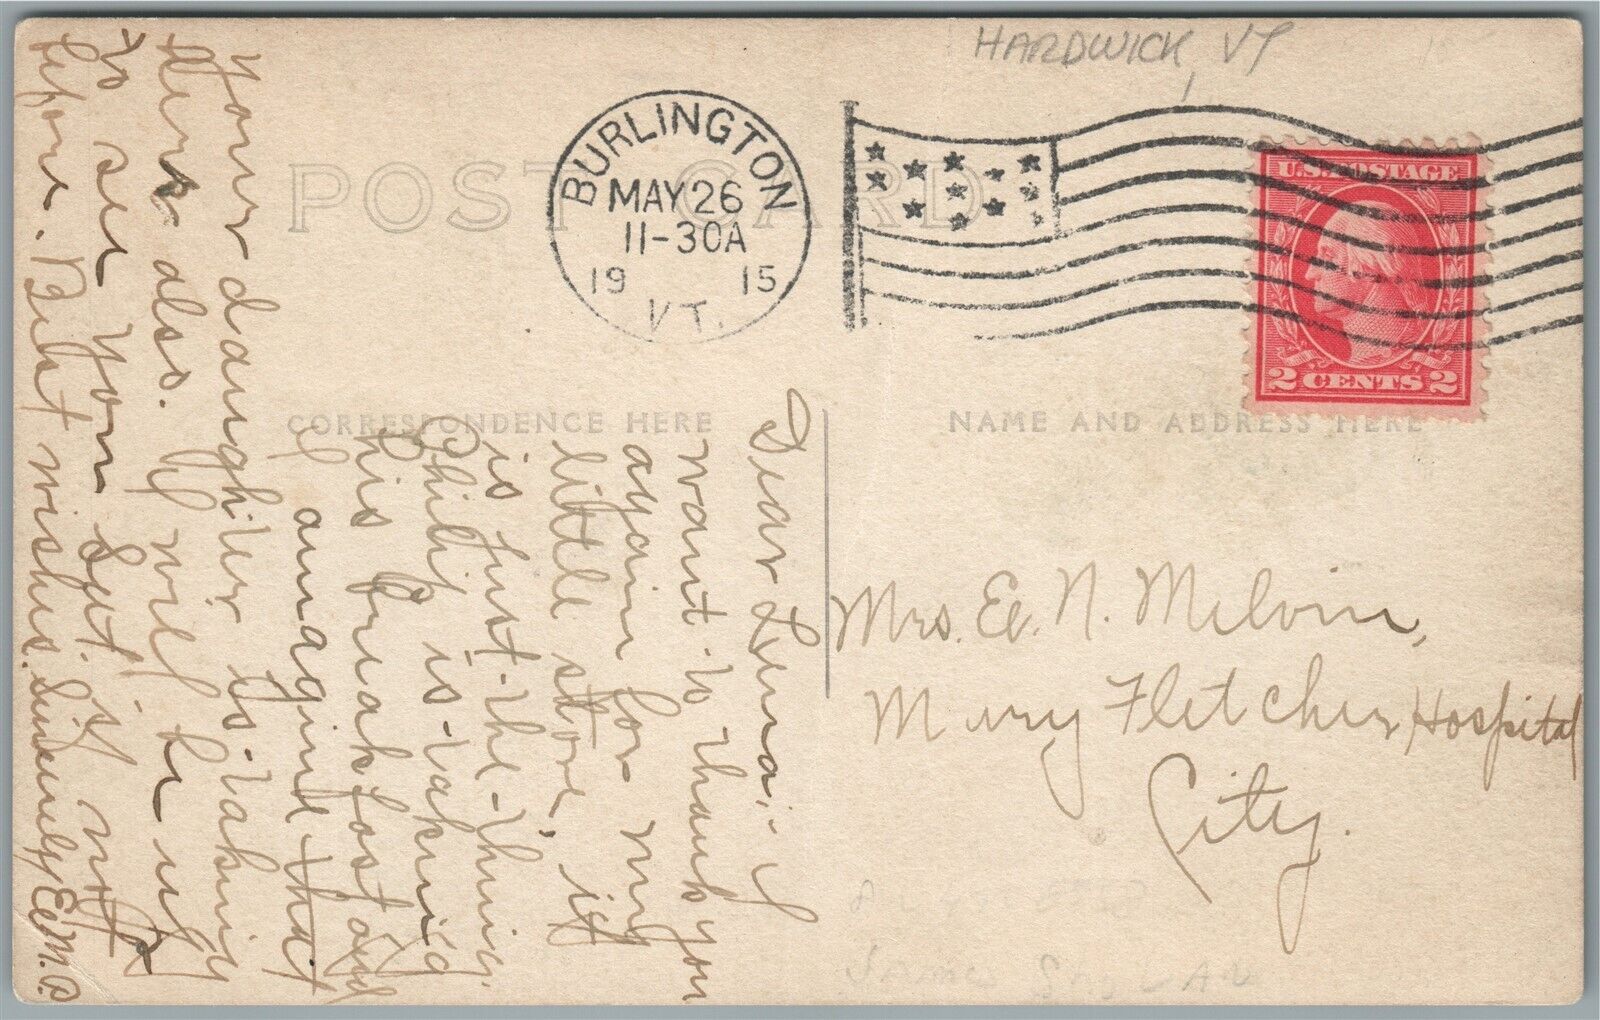 HARDWICK VT
POST CARD
BURLINGTON
MAY 26
11-30A
19 15
VT.
U.S. POSTAGE
2 CENTS 2
CORRESPONDENCE HERE
NAME AND ADDRESS HERE
Dear Lena; I
want to thank you
again for my
little store, it
is just-the-thing.
Philip is taking
his breakfast and
I imagine that
your daughter is-taking
hers also. I will be up
to see you Sat. if not
before. Best wishes. Sincerely,
Mrs. E. N. Melvin,
Mary Fletcher Hospital
City.